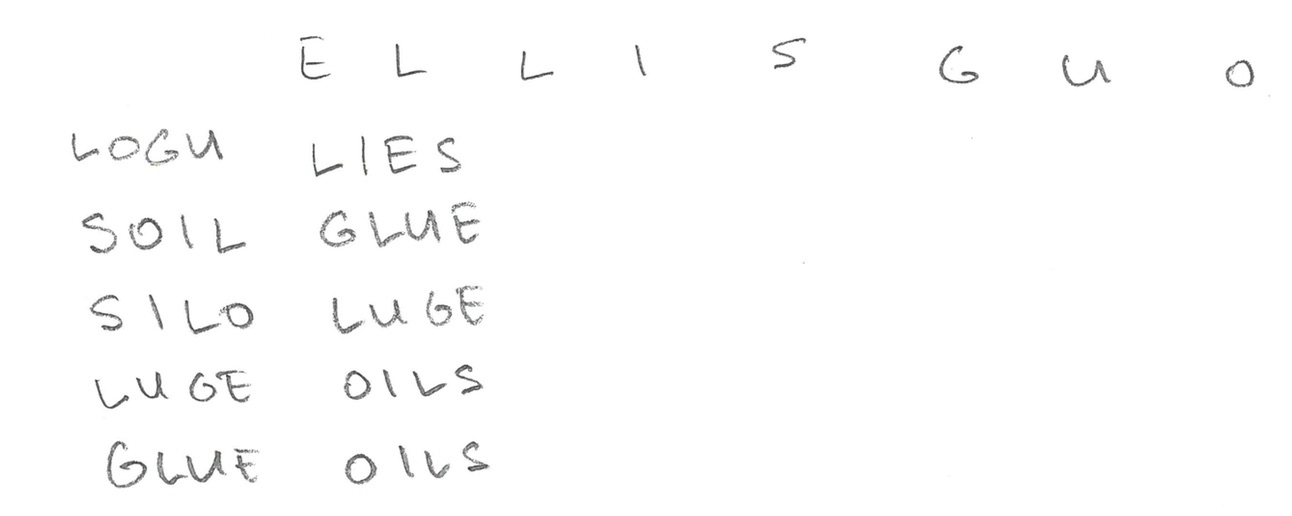 E L L I S G U O
LOGU LIES
SOIL GLUE
SILO LUGE
LUGE OILS
GLUE OILS